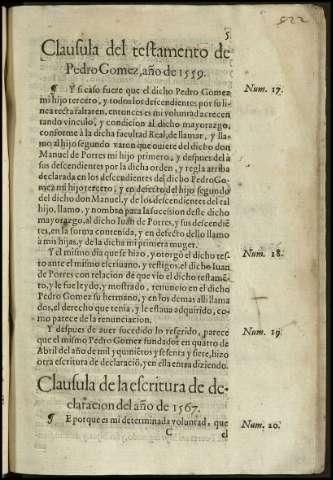 5
522
Clausula del testamento de
Pedro Gomez, año de 1559.
¶ Y si caso fuere que el dicho Pedro Gomez
mi hijo tercero, y todos los descendientes por su li-
nea recta faltaren, entonces es mi voluntad acrecen
tando vinculo, y condicion al dicho mayorazgo,
conforme à la dicha facultad Real, de llamar, y lla-
mo al hijo segundo varon que ouiere del dicho don
Manuel de Porres mi hijo primero, y despues del à
sus descendientes por la dicha orden, y regla arriba
declarada en los descendientes del dicho Pedro Go-
mez mi hijo tercero, y en defecto del hijo segundo
del dicho don Manuel, y de los descendientes del tal
hijo, llamo, y nombro para la sucession deste dicho
mayorazgo, al dicho Iuan de Porres, y sus descendié-
tes, en la forma contenida, y en defecto dello llamo
à mis hijas, y de la dicha mi primera muger.
Y el mismo dia que se hizo, y otorgò el dicho tes-
to ante el mismo escriuano, y testigos, el dicho Iuan
de Porres con relacion de que vio el dicho testamé-
to, y le fue leydo, y mostrado, renuncio en el dicho
Pedro Gomez su hermano, y en los demas alli llama
dos, el derecho que tenia, y le estaua adquirido, co-
mo parece de la renunciacion.
Y despues de auer sucedido lo referido, parece
que el mismo Pedro Gomez fundador en quatro de
Abril del año de mil y quiniẽtos y sesenta y siete, hizo
otra escritura de declaraciõ, y en ella entra diziendo.
Clausula de la escritura de de-
claracion del año de 1567.
¶ E porque es mi determinada voluntad, que
C el
Num. 17.
Num. 18.
Num. 19.
Num. 20.